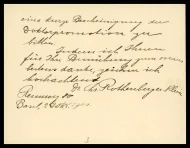 eine kurze Bescheinigung der
Doktorpromotion zu
bitten.
Indem ich Ihnen
für Ihre Bemühung zum voraus
bestens danke, zeichne ich
hochachtend
Dr. Rothenberger
Basel, 2